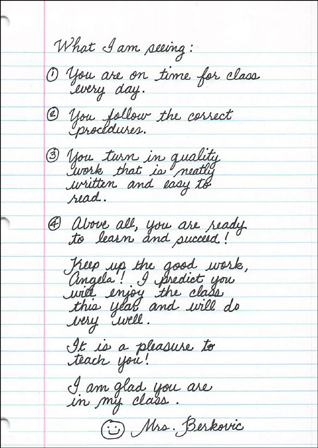 What I am seeing:
① You are on time for class
every day.
② You follow the correct
procedures.
③ You turn in quality
work that is neatly
written and easy to
read.
④ Above all, you are ready
to learn and succeed!
Keep up the good work,
Angela! I predict you
will enjoy the class
this year and will do
very well.
It is a pleasure to
teach you!
I am glad you are
in my class.
Mrs. Berkovic